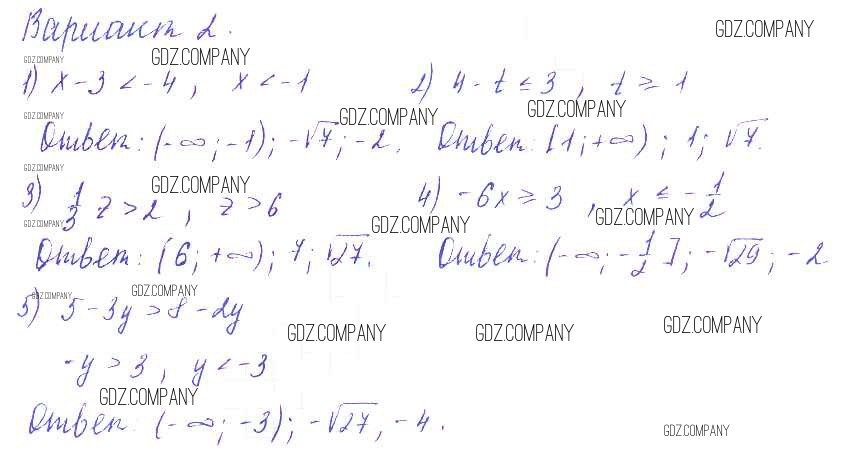 Вариант 2.
GDZ.COMPANY
GDZ.COMPANY GDZ.COMPANY
1) x - 3 < -4, x < -1 2) 4 - t ≤ 3, t ≥ 1
GDZ.COMPANY GDZ.COMPANY GDZ.COMPANY
Ответ: (-∞; -1); -√7; -2. Ответ: [1; +∞); 1; √7.
GDZ.COMPANY GDZ.COMPANY
3) 1/3 z > 2, z > 6 4) -6x ≥ 3, x ≤ -1/2
GDZ.COMPANY GDZ.COMPANY GDZ.COMPANY
Ответ: (6; +∞); 7; √27. Ответ: (-∞; -1/2]; -√29; -2.
GDZ.COMPANY GDZ.COMPANY
5) 5 - 3y > 8 - 2y
GDZ.COMPANY GDZ.COMPANY GDZ.COMPANY
-y > 3, y < -3
GDZ.COMPANY
Ответ: (-∞; -3); -√27, -4.
GDZ.COMPANY